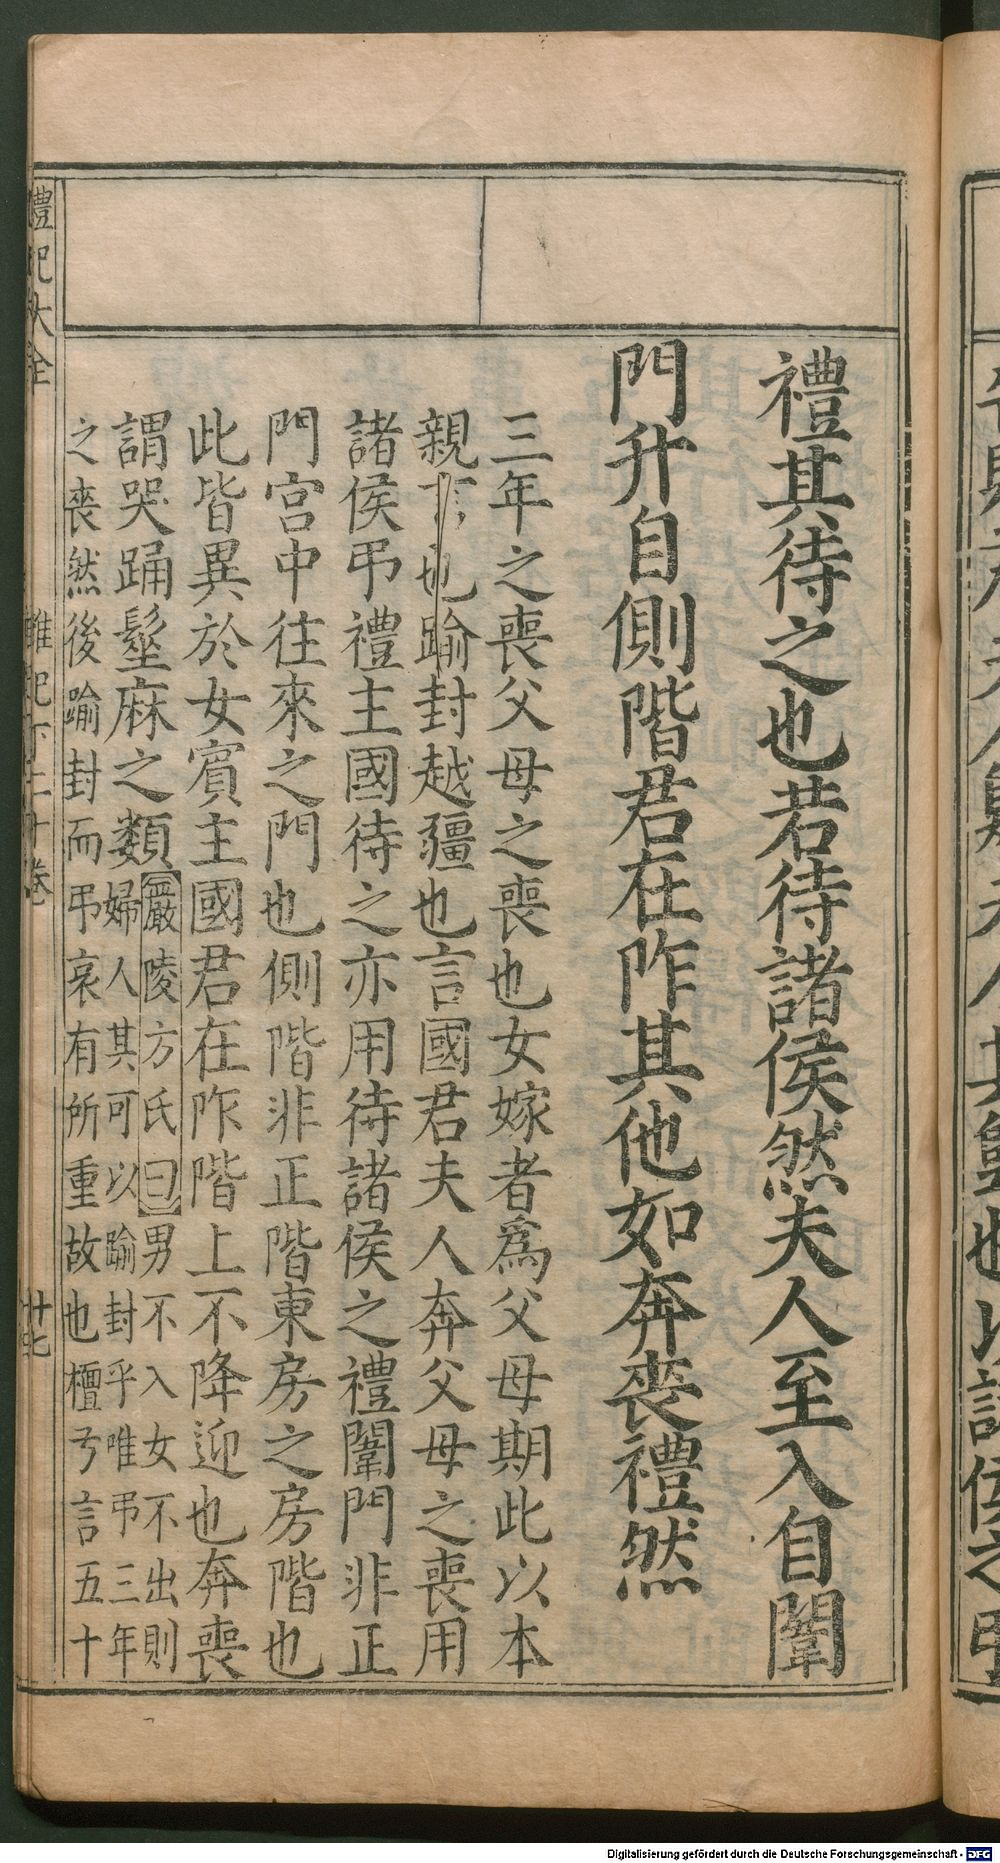 禮其待之也若待諸侯然夫人至入自闈
門升自側階君在阼其他如奔喪禮然
三年之喪父母之喪也女嫁者爲父母期此以本
親言也踰封越疆也言國君夫人奔父母之喪用
諸侯弔禮主國待之亦用待諸侯之禮闈門非正
門宮中往來之門也側階非正階東房之房階也
此皆異於女賓主國君在阼階上不降迎也奔喪
謂哭踊髽麻之類
嚴陵方氏曰男不入女不出則
婦人其可以踰封乎唯弔三年
之喪然後踰封而弔哀有所重故也檀弓言五十
禮記大全
雜記下二十卷
廿七
Digitalisierung gefördert durch die Deutsche Forschungsgemeinschaft - DFG